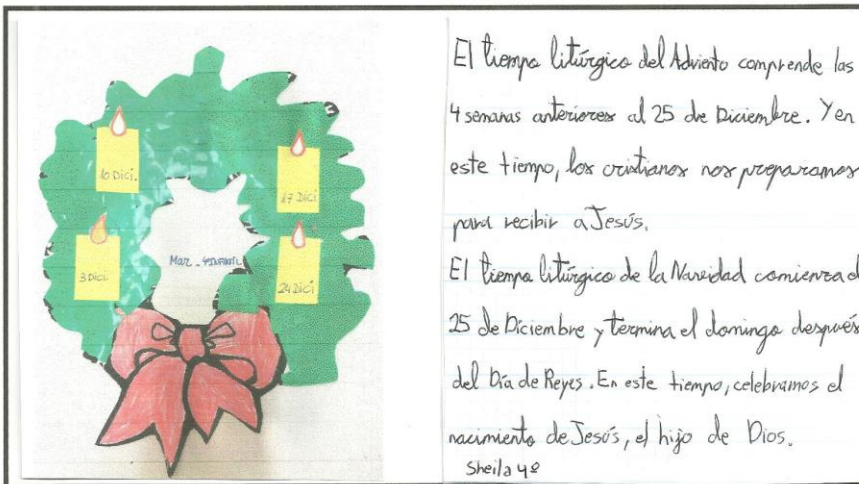 10 Dici.
17 Dici
3 Dici
24 Dici
Mar - 4º INFANTIL
El tiempo litúrgico del Adviento comprende las
4 semanas anteriores al 25 de Diciembre. Y en
este tiempo, los cristianos nos preparamos
para recibir a Jesús.
El tiempo litúrgico de la Navidad comienza el
25 de Diciembre y termina el domingo después
del Día de Reyes. En este tiempo, celebramos el
nacimiento de Jesús, el hijo de Dios.
Sheila 4º